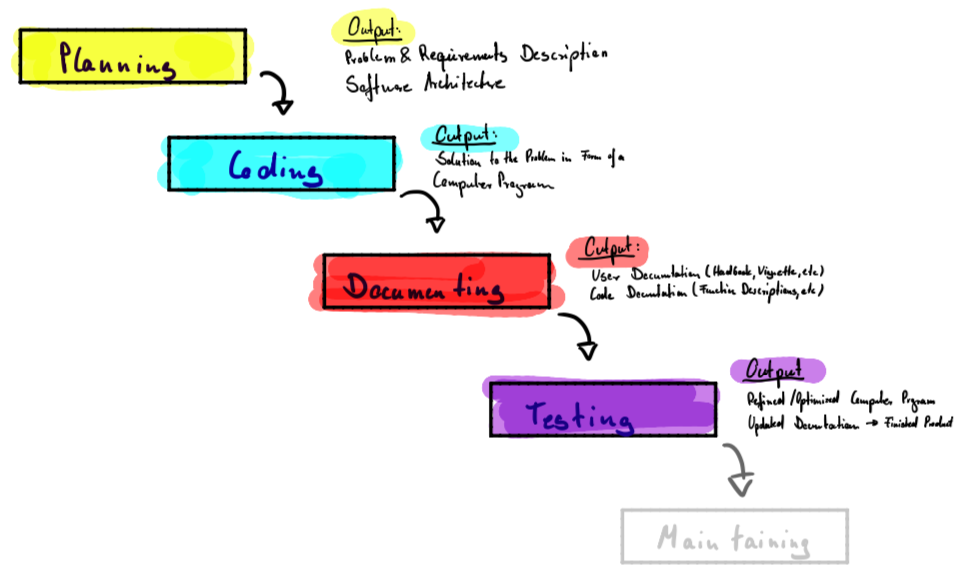 Planning
Output:
Problem & Requirements Description
Software Architecture
Coding
Output:
Solution to the Problem in Form of a
Computer Program
Documenting
Output:
User Documtation (Handbook, Vignette, etc)
Code Documtation (Function Descriptions, etc)
Testing
Output
Refined/Optimized Computer Program
Updated Documtation → Finished Product
Maintaining